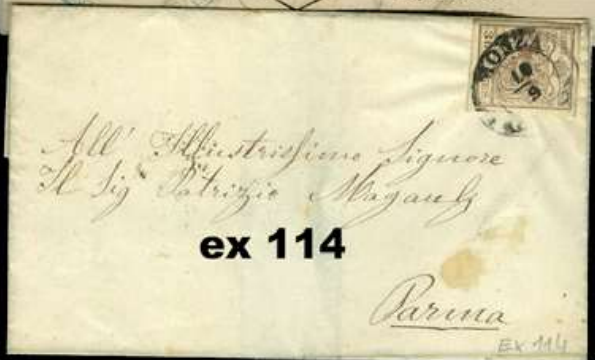 MONZA
10/9
All' Illustrissimo Signore
Il Sigr Patrizio Magauly
ex 114
Parma
Ex 114